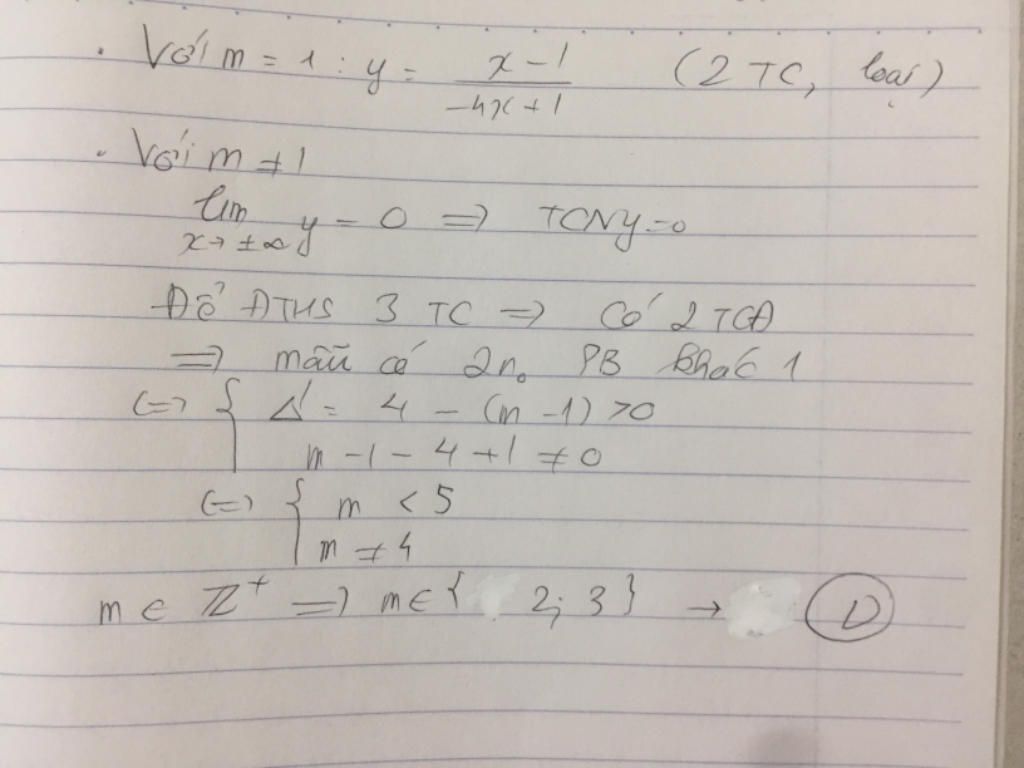 . Với m = 1 : y = x - 1 / -4x + 1 (2 TC, loại)
. Với m ≠ 1
lim x→±∞ y = 0 => TCN y=0
Để ĐTHS 3 TC => Có 2 TCĐ
=> mẫu có 2 no PB khác 1
<=> { Δ' = 4 - (m - 1) > 0
m - 1 - 4 + 1 ≠ 0
<=> { m < 5
m ≠ 4
m ∈ Z⁺ => m ∈ { 2; 3 } → D